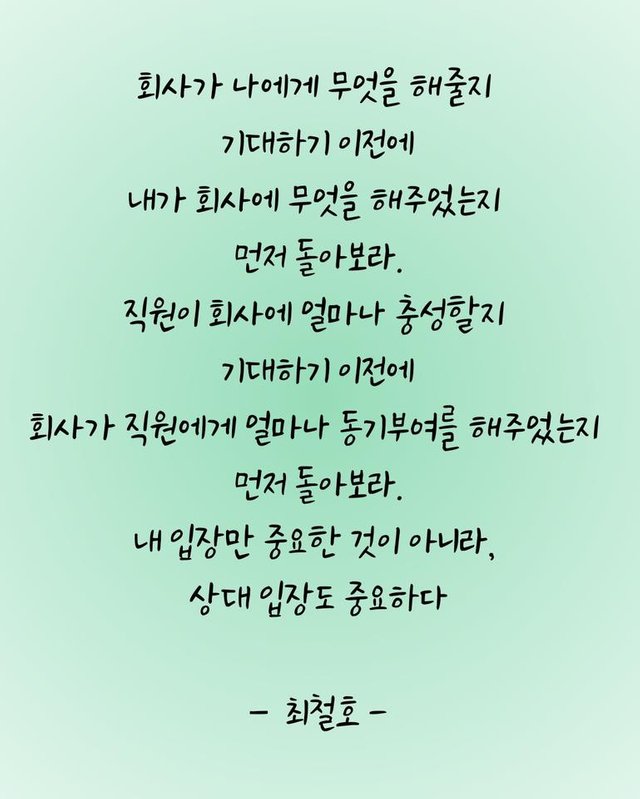 회사가 나에게 무엇을 해줄지
기대하기 이전에
내가 회사에 무엇을 해주었는지
먼저 돌아보라.
직원이 회사에 얼마나 충성할지
기대하기 이전에
회사가 직원에게 얼마나 동기부여를 해주었는지
먼저 돌아보라.
내 입장만 중요한 것이 아니라,
상대 입장도 중요하다
- 최철호 -